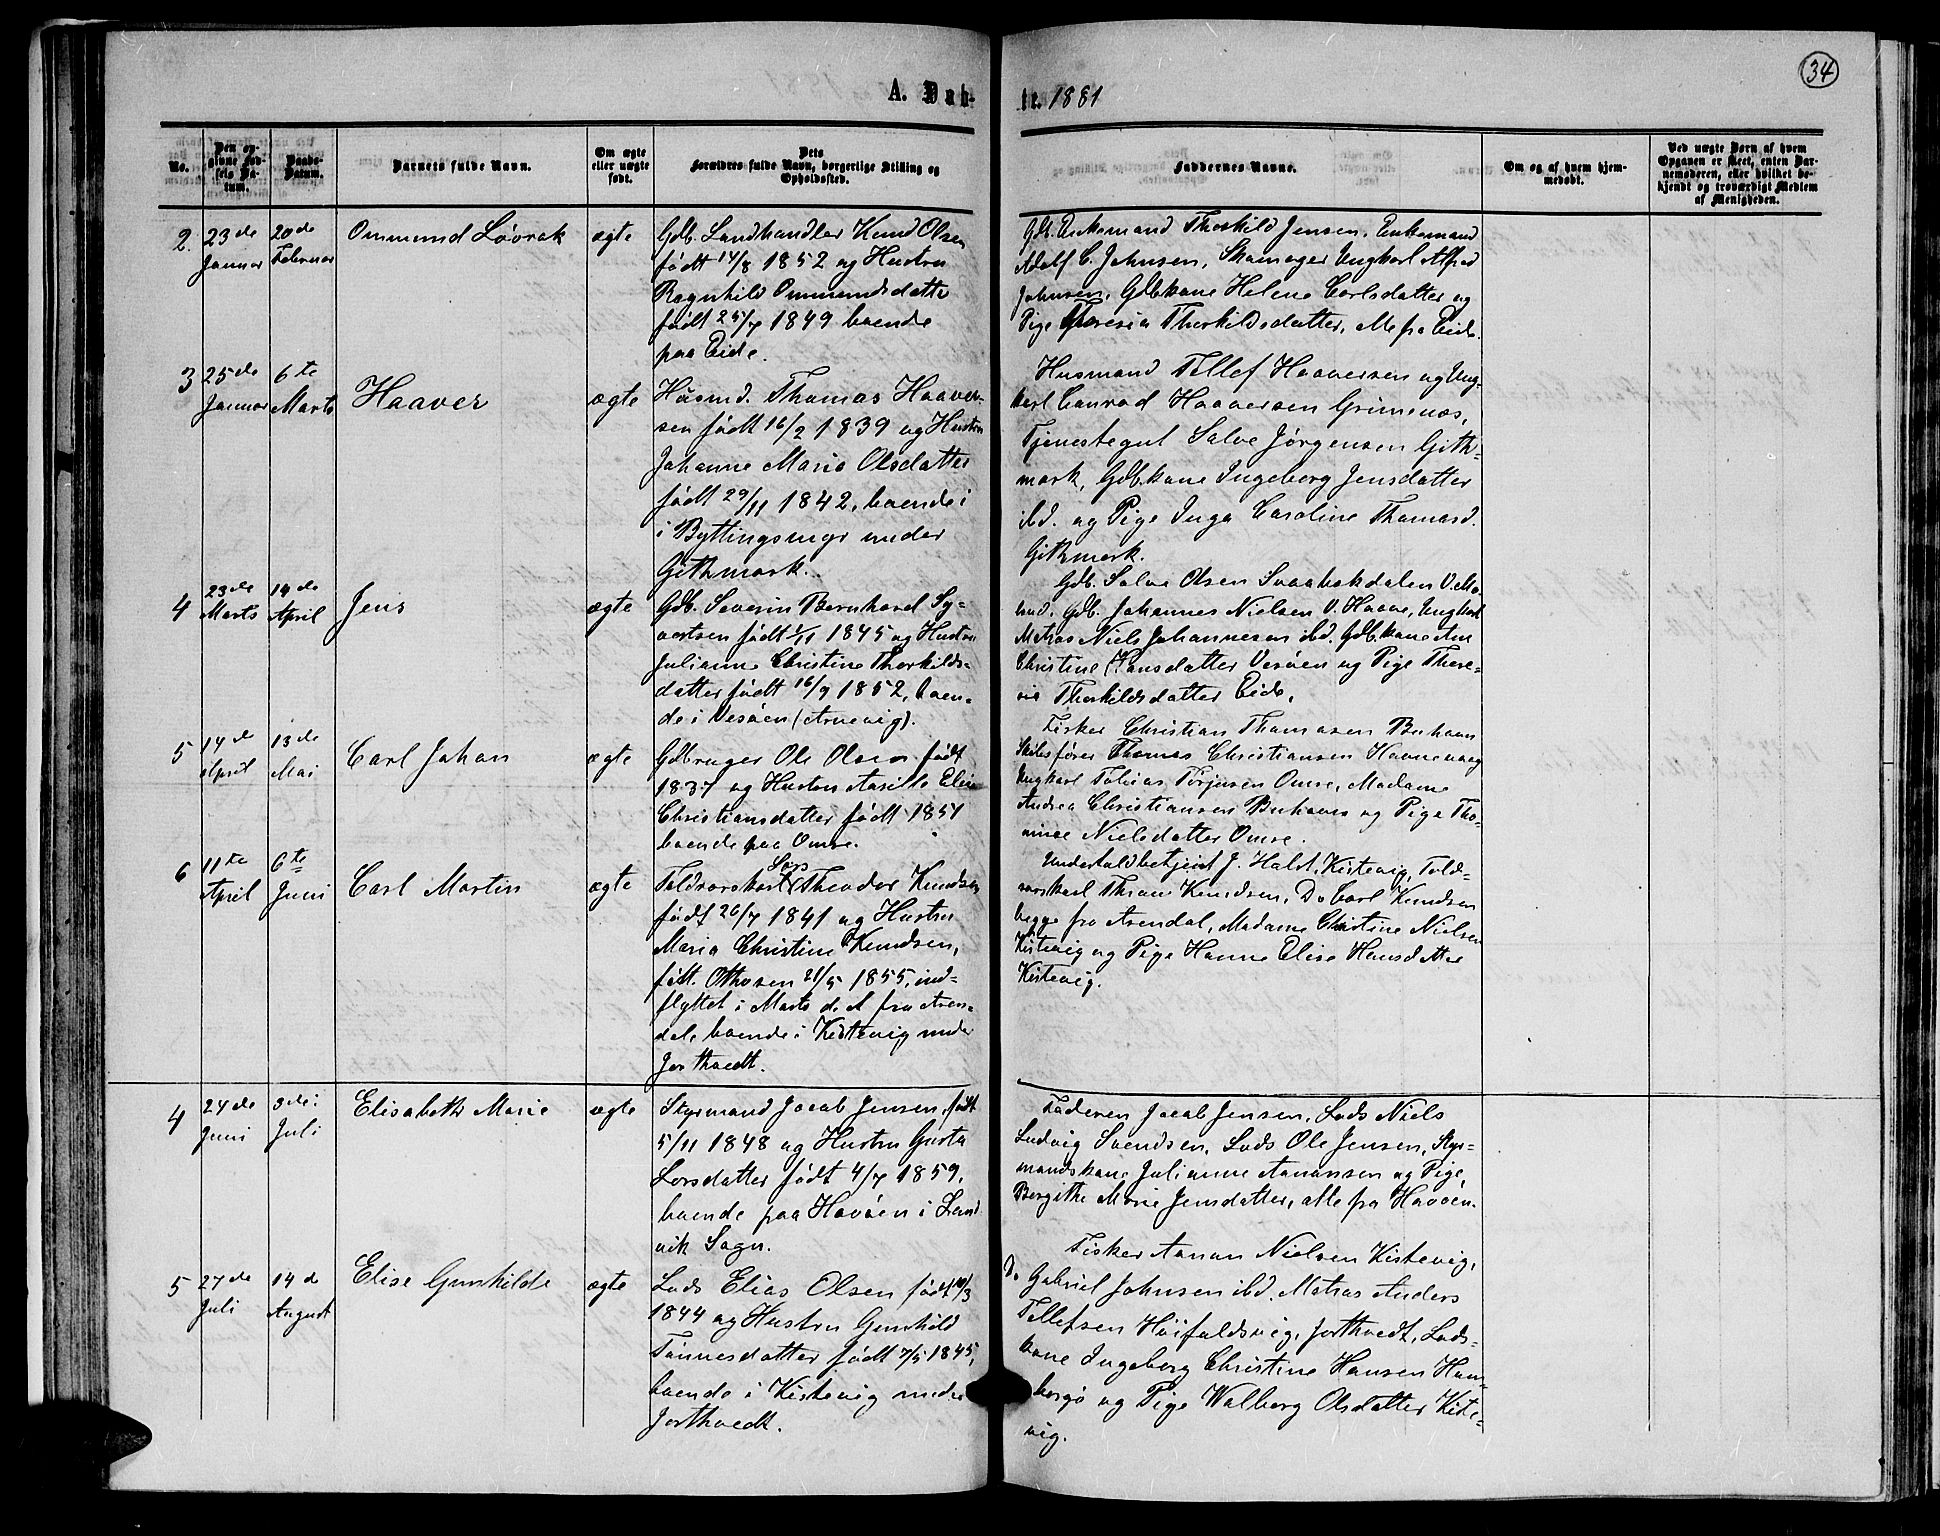 34
A. Døb-
te. 1881
No.
Den op-
givne Fød-
sels Da-
tum.
Daabs-
Datum.
Barnets fulde Navn.
Om ægte
eller uægte
født.
Dets
Forældres fulde Navn, borgerlige Stilling og
Opholdssted.
Faddernes Navne.
Om og af hvem hjem-
medøbt.
Ved uægte Børn af hvem
Opgaven er skeet, enten Bar-
nemoderen, eller hvilket be-
kjendt og troværdigt Medlem
af Menigheden.
2.
23de
Januar
20de
Februar
Ommund Løvrak
ægte
Gdb. Landhandler Knud Olsen
født 14/8 1852 og Hustru
Ragnhild Ommundsdatter
født 25/7 1849 boende
paa Eide.
Gdb. Enkemand Thorkild Jensen, Enkemand
Adolf C. Johnsen, Skomager Ungkarl Alfred
Johnsen, Gdbkone Helene Carlsdatter og
Pige Theresia Thorkildsdatter, Alle fra Eide.
3
25de
Januar
6te
Marts
Haaver
ægte
Husmd. Thomas Haaver-
sen født 16/2 1839 og Hustru
Johanne Marie Olsdatter
født 29/11 1842, boende i
i Byttingsmyr under
Githmark.
Husmand Tellef Haaversen og Ung-
karl Conrad Haaversen Grimenæs,
Tjenestegut Salve Jørgensen Gith-
mark, Gdb.kone Ingeborg Jensdatter
ibd. og Pige Inga Caroline Thomasd.
Githmark.
4
23de
Marts
14de
April
Jens
ægte
Gdb. Severin Bernhard Sy-
vertsen født 1/11 1845 og Hustru
Julianne Christine Thorkilds-
datter født 16/9 1852, boen-
de i Vesøen (Arnevig).
Gdb. Salve Olsen Svaabekdalen V. Mo-
land. Gdb. Johannes Nielsen V. Haave, Ungkarl
Matros Niels Johannesen ibd. Gdb.kone Ane
Christine Hansdatter Vesøen og Pige There-
sie Thorkildsdatter Eide.
5
14de
April
13de
Mai
Carl Johan
ægte
Gdbruger Ole Olsen født
1837 og Hustru Aasille Elise
Christiansdatter født 1851
boende paa Omre.
Fisker Christian Thomasen Buhavn
Skibsfører Thomas Christiansen Havnevaag
Ungkarl Tobias Terjusen Omre, Madame
Andrea Christiansen Buhavn og Pige Tho-
mine Nielsdatter Omre.
6
11te
April
6te
Juni
Carl Martin
ægte
Toldrorskarl Lars Theodor Knudsen
født 26/7 1841 og Hustru
Maria Christine Knudsen,
født. Othosen 21/5 1855, ind-
flyttet i Marts d. A fra Aren-
dal, boende i Kistevig under
Jorthvedt.
Undertoldbetjent J. Halst, Kistevig, Told-
rorskarl Thrane Knudsen, Do Carl Knudsen
begge fra Arendal, Madame Christine Nielsen
Kistevig og Pige Hanne Elise Hansdatter
Kistevig.
4
24de
Juni
3de
Juli
Elisabeth Marie
ægte
Styrmand Jacob Jensen, født
5/11 1848 og Hustru Gusta
Larsdatter født 4/7 1859,
boende paa Havøen i Land-
vik Sogn.
Faderen Jacob Jensen, Lods Niels
Ludvig Svendsen, Lods Ole Jensen, Styr-
mandskone Julianne Aanonsen og Pige,
Bergithe Marie Jensdatter, alle fra Havøen.
5
27de
Juli
14de
August
Elise Gunhilde
ægte
Lods Elias Olsen født
1844 og Hustru Gunhild
Tønnesdatter født 7/5 1845,
boende i Kistevig under
Jorthvedt.
Fisker Aanon Nielsen Kistevig,
Do Gabriel Johnsen ibd. Matros Anders
Tellefsen Høifaldsvig, Jorthvedt, Lods-
kone Ingeborg Christine Hansen Hom-
borgø og Pige Walborg Olsdatter Kiste-
vig.